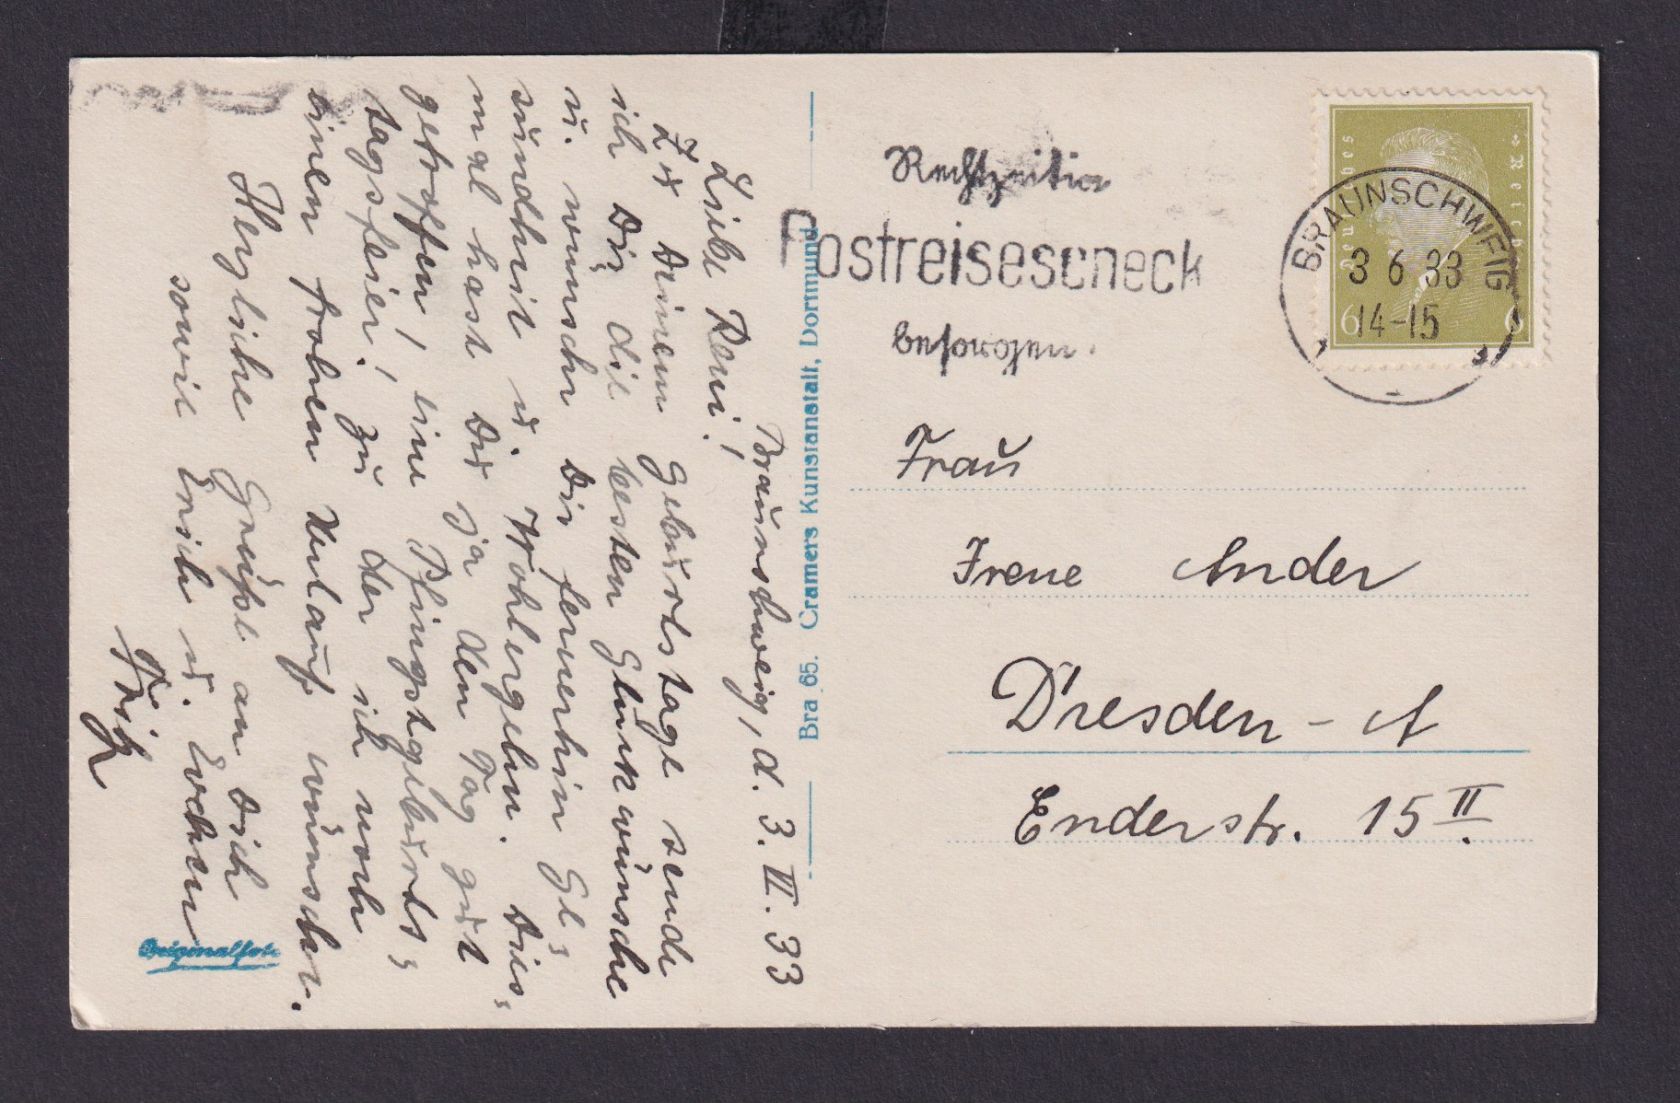 Braunschweig, d. 3. VI. 33
Liebe Reni!
Zu Deinem Geburtstage sende
ich Dir die besten Glückwünsche
u. wünsche Dir fernerhin Ge-
sundheit u. Wohlergehn. Dies-
mal hast Du ja den Tag gut
getroffen, eine Pfingstgeburts-
tagsfeier! zu der ich noch
einen frohen Verlauf wünsche.
Herzliche Grüße an Dich
sowie Erich u.
Fritz
Originalfoto
Bra 65. Cramers Kunstanstalt, Dortmund
Rechtzeitig
Postreisescheck
besorgen.
Deutsches Reich
6 6
BRAUNSCHWEIG
3 6 33
14-15
Frau
Irene Ander
Dresden - A
Enderstr. 15 II.